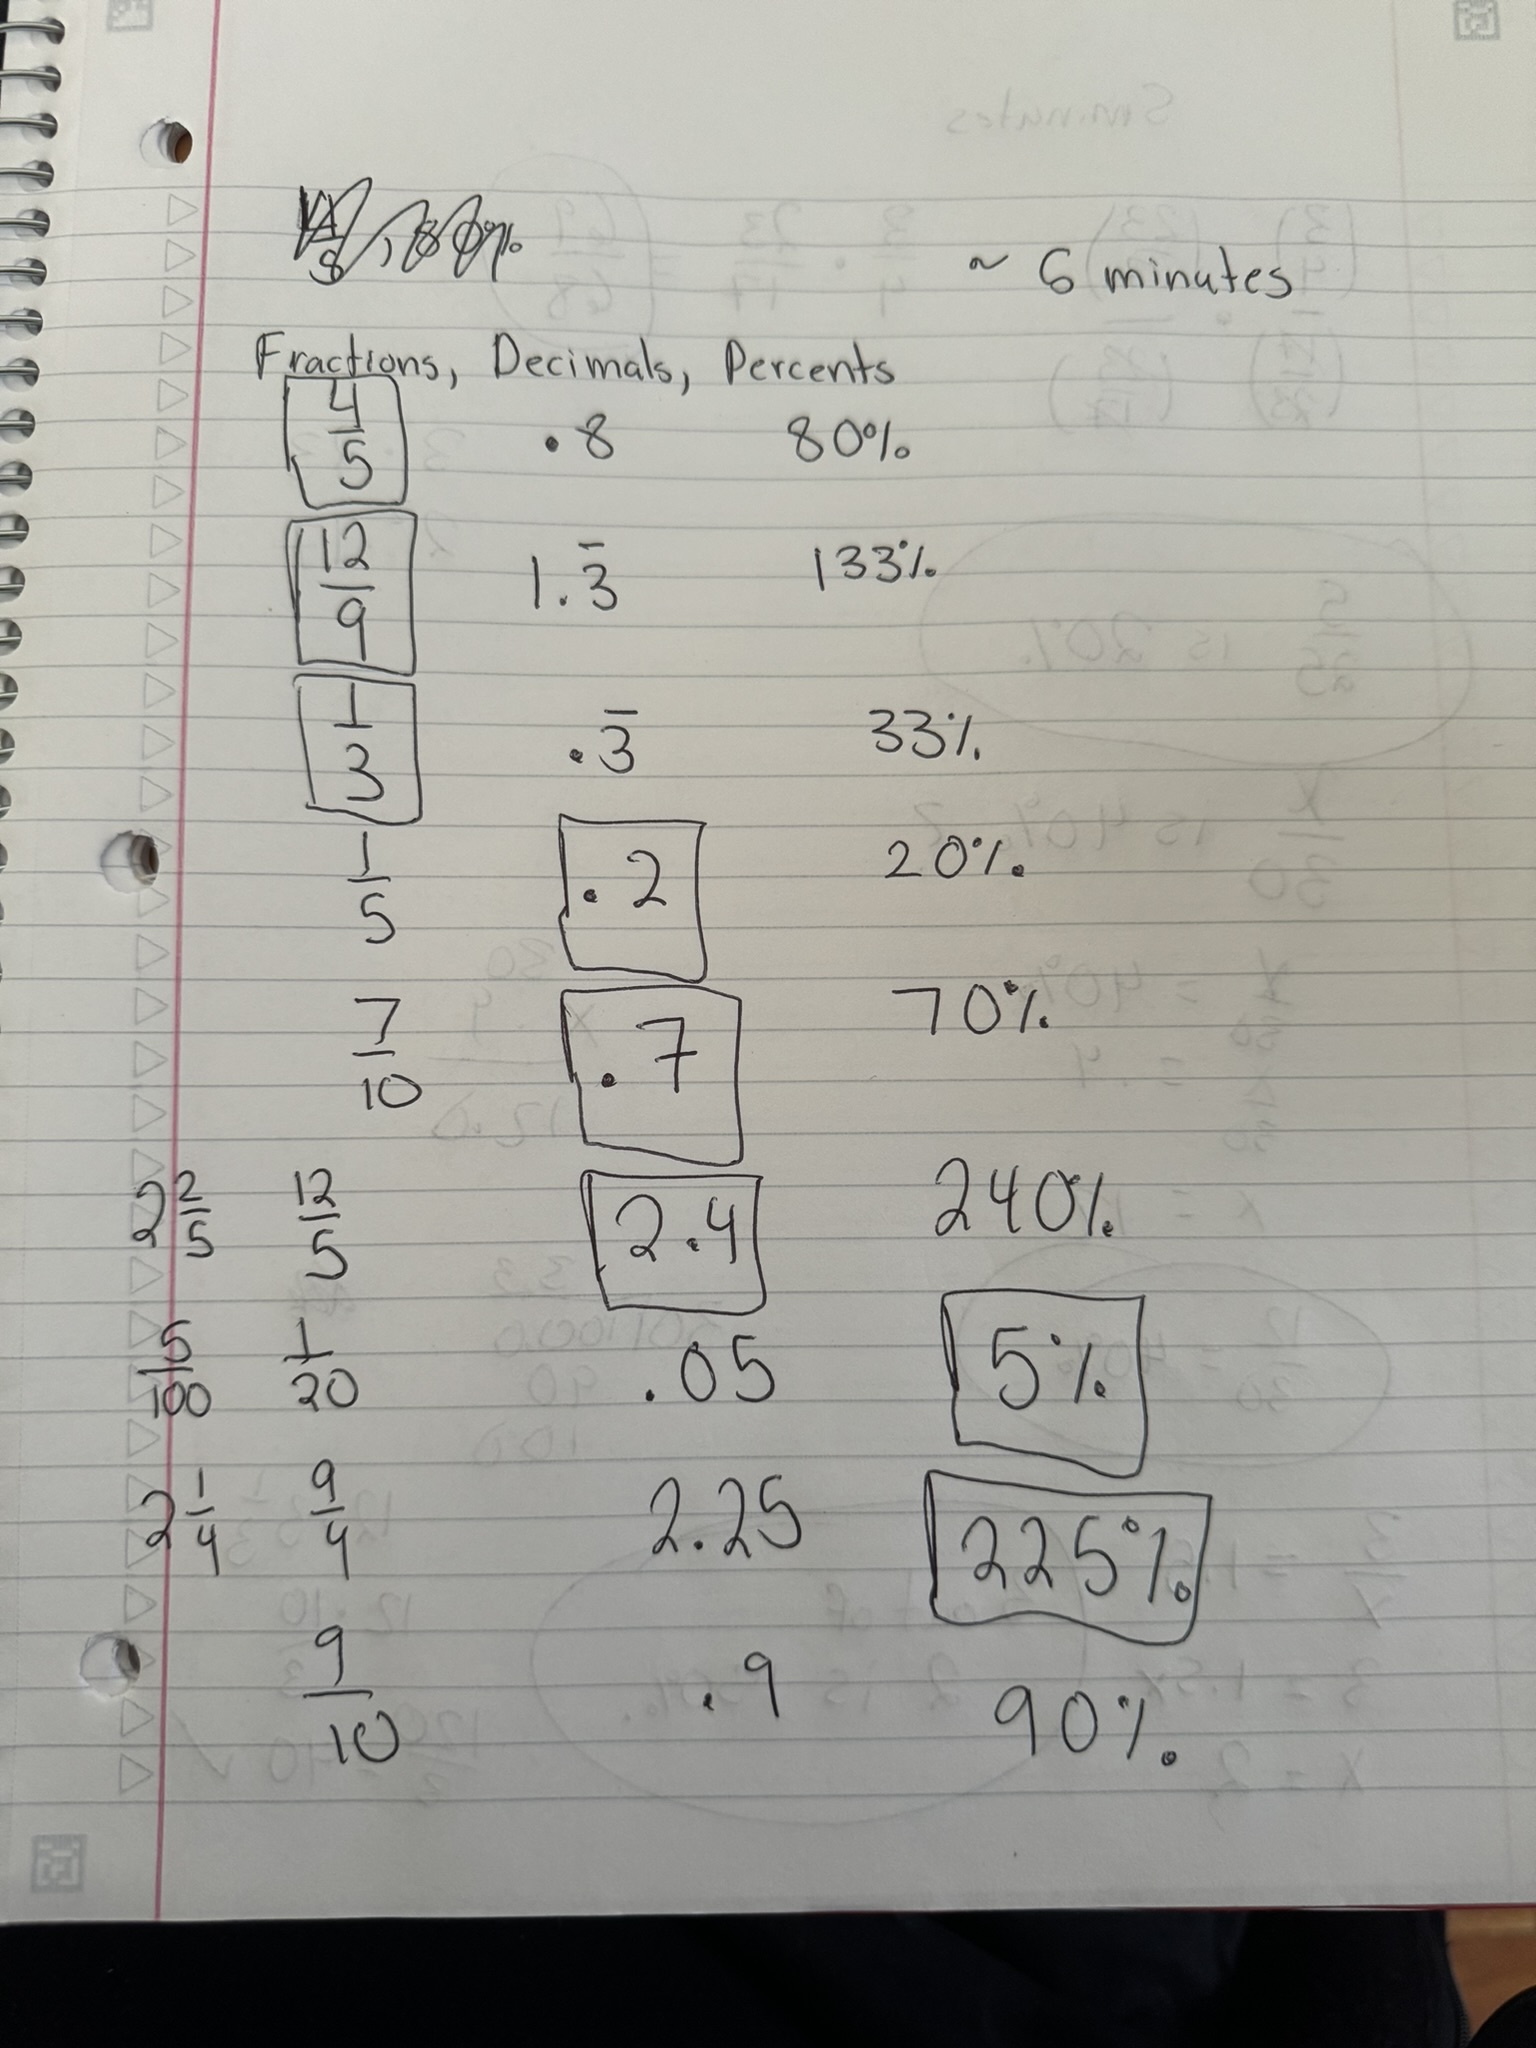 ~ 6 minutes
Fractions, Decimals, Percents
4/5 .8 80%
12/9 1.3̅ 133%
1/3 .3̅ 33%
1/5 .2 20%
7/10 .7 70%
2 2/5 12/5 2.4 240%
5/100 1/20 .05 5%
2 1/4 9/4 2.25 225%
9/10 .9 90%